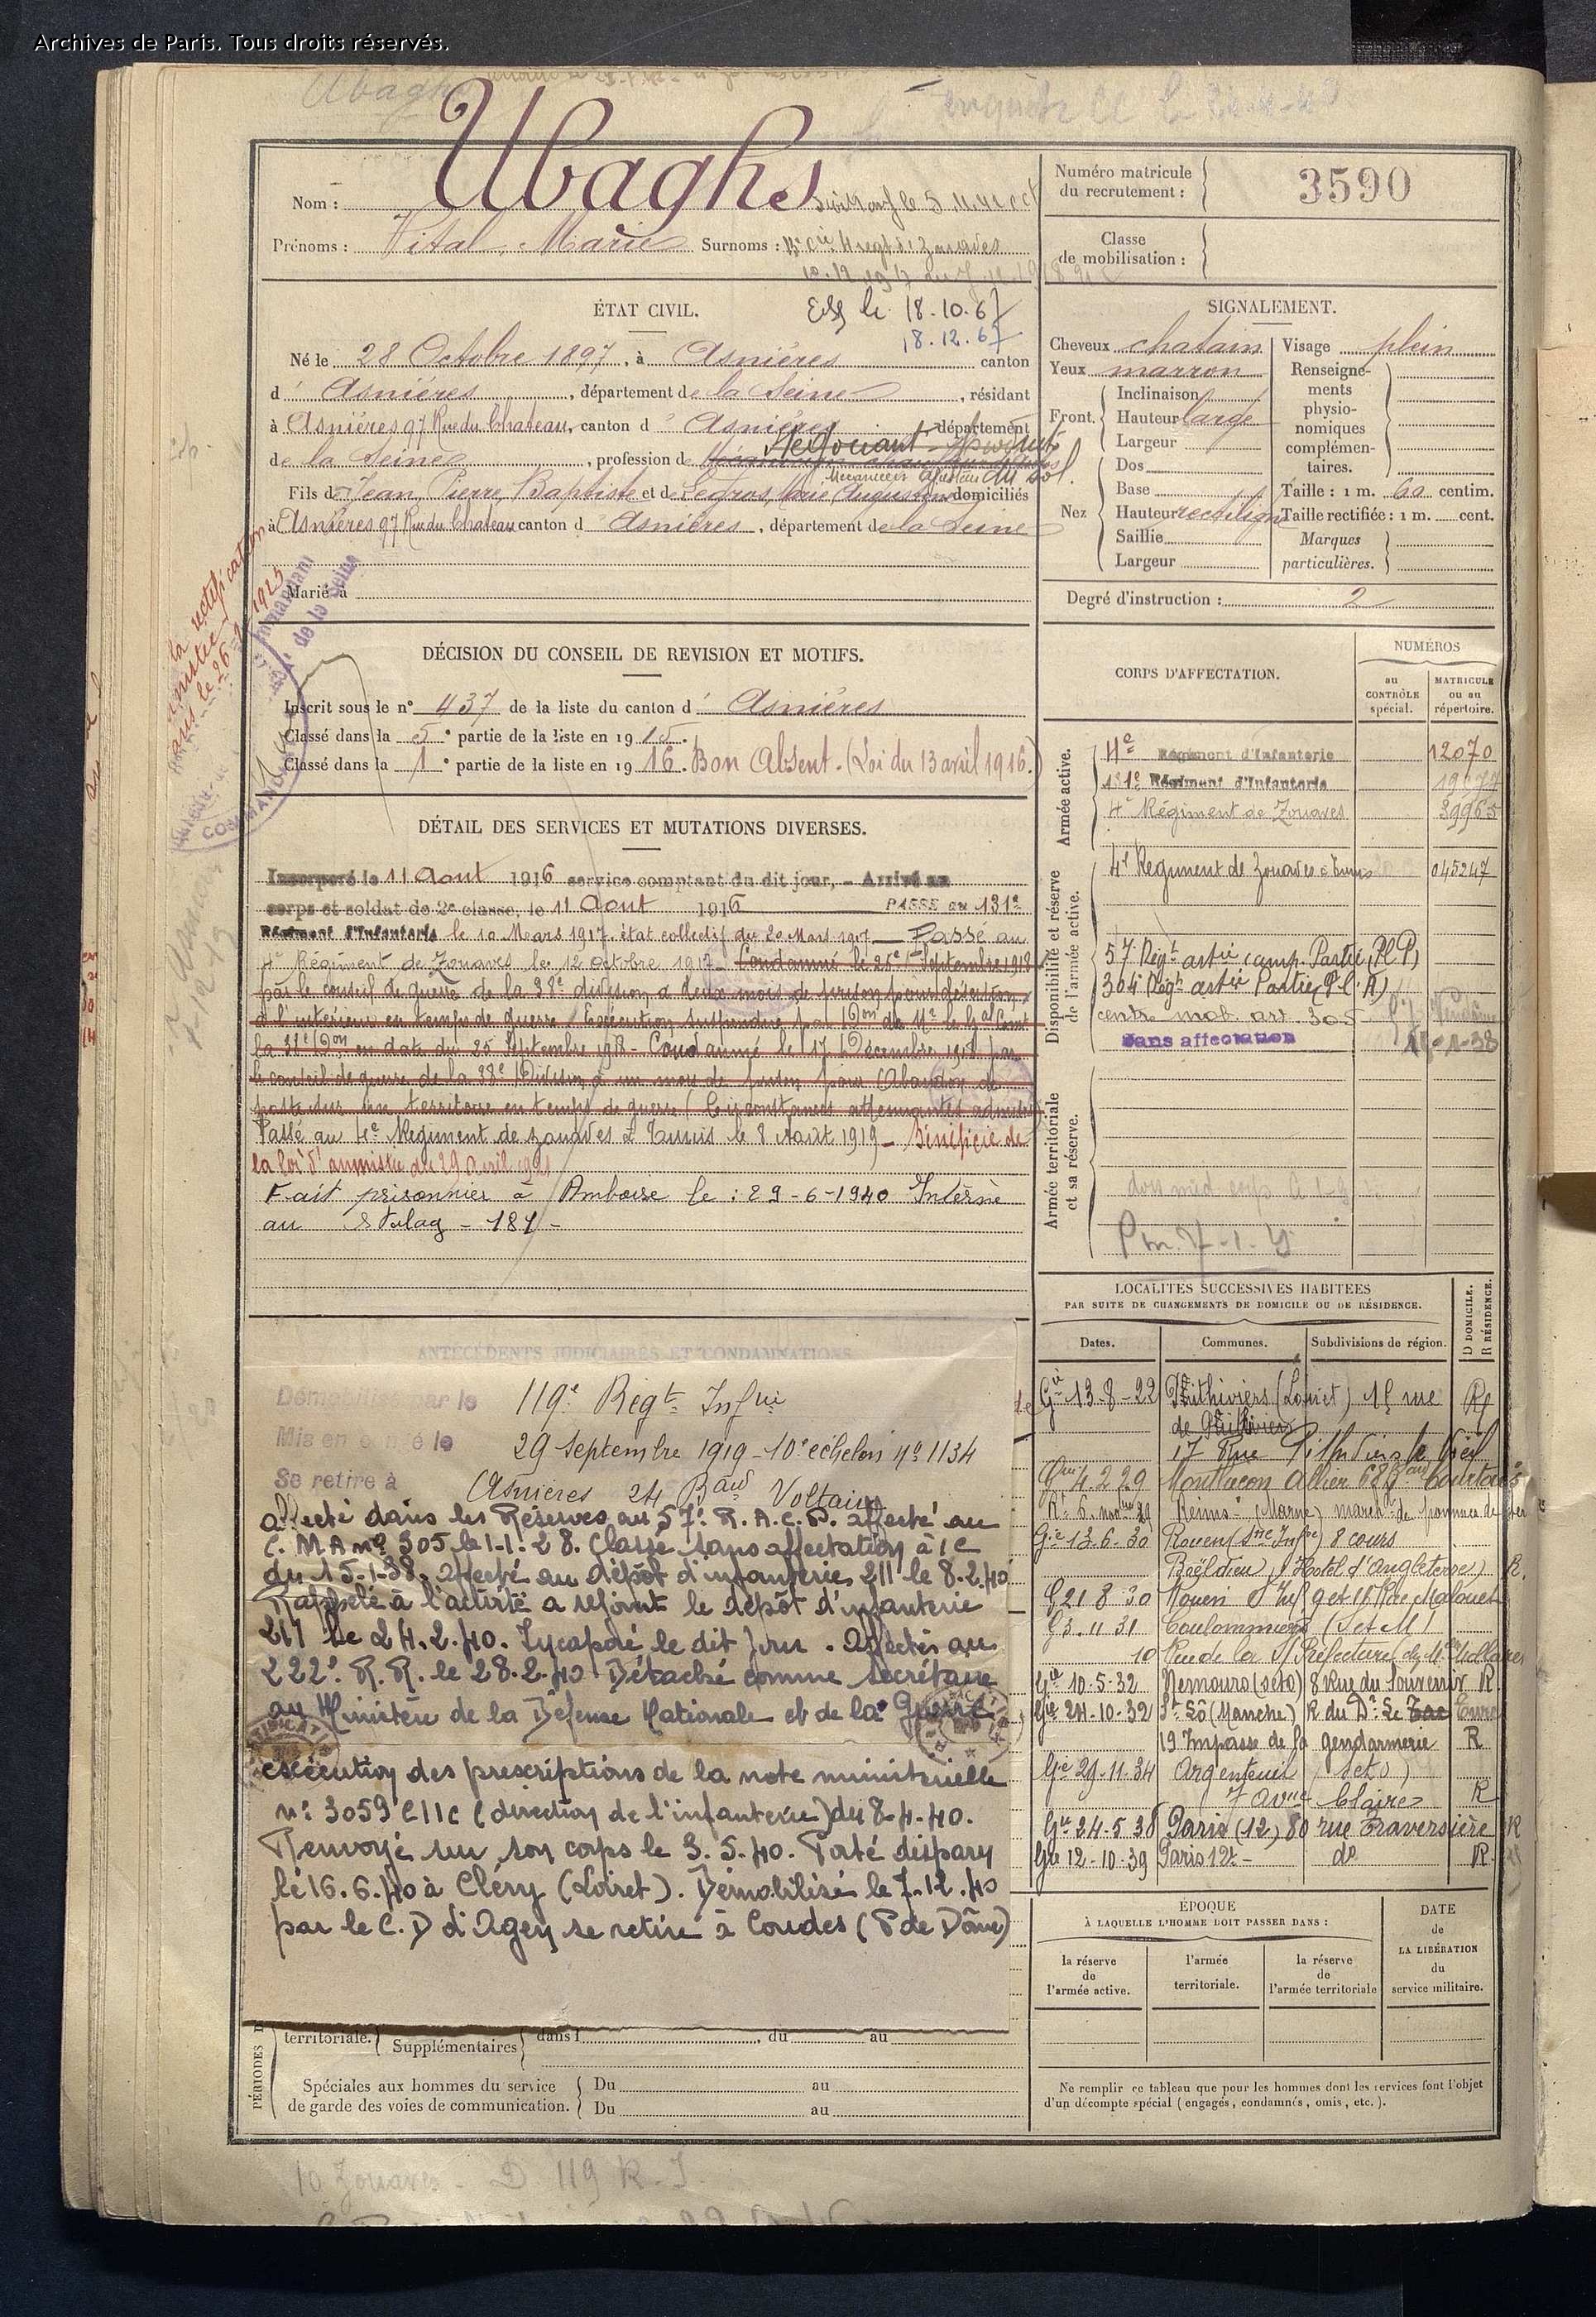 Archives de Paris. Tous droits réservés.
Ubaghs
Nom : Ubaghs
Prénoms : Vital, Marie Surnoms :
Numéro matricule du recrutement : 3590
Classe de mobilisation :
ÉTAT CIVIL.
le 18.10.67
18.12.67
Né le 28 Octobre 1897, à Asnières canton
d' Asnières, département de la Seine, résidant
à Asnières 97 Rue du Château, canton d' Asnières département
de la Seine, profession de
du sol.
Fils de Jean, Pierre, Baptiste et de Legros, Marie, Augustine domiciliés
à Asnières 97 Rue du Château canton d' Asnières, département de la Seine
Marié à
SIGNALEMENT.
Cheveux chatain
Yeux marron
Front. Inclinaison
Hauteur large
Largeur
Nez Dos
Base
Hauteur rectiligne
Saillie
Largeur
Visage plein
Renseignements physionomiques complémentaires.
Taille : 1 m. 60 centim.
Taille rectifiée : 1 m. cent.
Marques particulières.
Degré d'instruction : 2
DÉCISION DU CONSEIL DE REVISION ET MOTIFS.
Inscrit sous le n° 437 de la liste du canton d' Asnières
Classé dans la 5e partie de la liste en 1915.
Classé dans la 1e partie de la liste en 1916. Bon Absent. (Loi du 13 avril 1916.)
DÉTAIL DES SERVICES ET MUTATIONS DIVERSES.
Incorporé le 11 Aout 1916 service comptant du dit jour, - Arrivé au
corps et soldat de 2e classe, le 11 Aout 1916 PASSÉ au 131e
Régiment d'Infanterie le 10 Mars 1917. état collectif du 20 Mars 1917 — Passé au
4e Régiment de Zouaves le 12 Octobre 1917 - Condamné le 25 Septembre 1918
par le conseil de guerre de la 38e division, à deux mois de prison pour désertion
à l'intérieur en temps de guerre. Exécution suspendue par Don de Mr le Gal Comt
la 38e Don en date du 25 Septembre 1918 - Condamné le 17 Décembre 1918 par
le conseil de guerre de la 38e Division à un mois de prison pour Abandon de
poste sur un territoire en temps de guerre (Circonstances attenuantes admises)
Passé au 4e Régiment de zouaves à Tunis le 8 Août 1919 - Bénéficie de
la loi d'amnistie du 29 Avril 1921
Fait prisonnier à Amboise le : 29-6-1940 Interné
au Stalag - 181 -
CORPS D'AFFECTATION.
NUMÉROS
au CONTRÔLE spécial.
MATRICULE ou au répertoire.
Armée active.
4e Régiment d'Infanterie 12070
131e Régiment d'Infanterie
4e Régiment de Zouaves 39965
Disponibilité et réserve de l'armée active.
4e Regiment de Zouaves à Tunis 045247
57 Régt artie camp. Portée (Pl. P)
304 Régt artie Portée (Pl. A)
centre mob. art. 305
Sans affectation 15-1-38
Armée territoriale et sa réserve.
ANTÉCÉDENTS JUDICIAIRES ET CONDAMNATIONS
Démobilisé par le 119e Régt Infrie
Mis en congé le 29 Septembre 1919 - 10e échelon No 1134
Se retire à Asnieres 24 Bard Voltaire
affecté dans les Réserves au 57e R.A.C.P. affecté au
C.M.A no 305 le 1-1-28. Classé sans affectation à /c
du 15-1-38. Affecté au dépôt d'infanterie 211 le 8.2.40
Rappelé à l'activité a rejoint le dépôt d'infanterie
211 le 24.2.40. Incaporé le dit jour. Affecté au
222e R.R. le 28.2.40 Détaché comme secrétaire
au Ministère de la Défense Nationale et de la Guerre
exécution des prescriptions de la note ministerielle
no 3059 E11c (direction de l'infanterie) du 8-4-40.
Renvoyé sur son corps le 3.5.40. Porté disparu
le 16.6.40 à Cléry (Loiret). Démobilisé le 7.12.40
par le C.D d'Agen se retire à Coudes (P de Dôme)
LOCALITÉS SUCCESSIVES HABITÉES
PAR SUITE DE CHANGEMENTS DE DOMICILE OU DE RÉSIDENCE.
Dates. Communes. Subdivisions de région. D DOMICILE. R RÉSIDENCE.
Gie 13-8-22 Pithiviers (Loiret) 15 rue
de Pithiviers
17 Rue Pithiviers le Vieil
4.2.29 Montluçon Allier 68 Bard Courtais
6. 29 Reims (Marne) march de pommes de
Gie 13.6.30 Rouen (Sne Infre) 8 cours
Boëldieu (Hotel d'Angleterre) R.
G 21 8 30 Rouen S Inf 9 et 11 Rue Malouet
G 3.11 31 Coulommiers (S et M)
10 Rue de la S/Préfecture
Gie 10-5-32 Nemours (seto) 8 Rue du Souvenir R
Gie 24-10-32 St Lô (Manche) R du Dr Le
19 Impasse de la gendarmerie R
Gie 29-11-34 Argenteuil (seto)
7 avnue Claire R
Gie 24-5-38 Paris (12) 80 rue Traversière R
Gie 12-10-39 Paris 12e - do R.
ÉPOQUE
À LAQUELLE L'HOMME DOIT PASSER DANS :
la réserve de l'armée active.
l'armée territoriale.
la réserve de l'armée territoriale
DATE de LA LIBÉRATION du service militaire.
territoriale. Supplémentaires dans l , du au
Spéciales aux hommes du service Du au
de garde des voies de communication. Du au
PÉRIODES D
Ne remplir ce tableau que pour les hommes dont les services font l'objet
d'un décompte spécial (engagés, condamnés, omis, etc.).
10 Zouaves - D 119 R.I